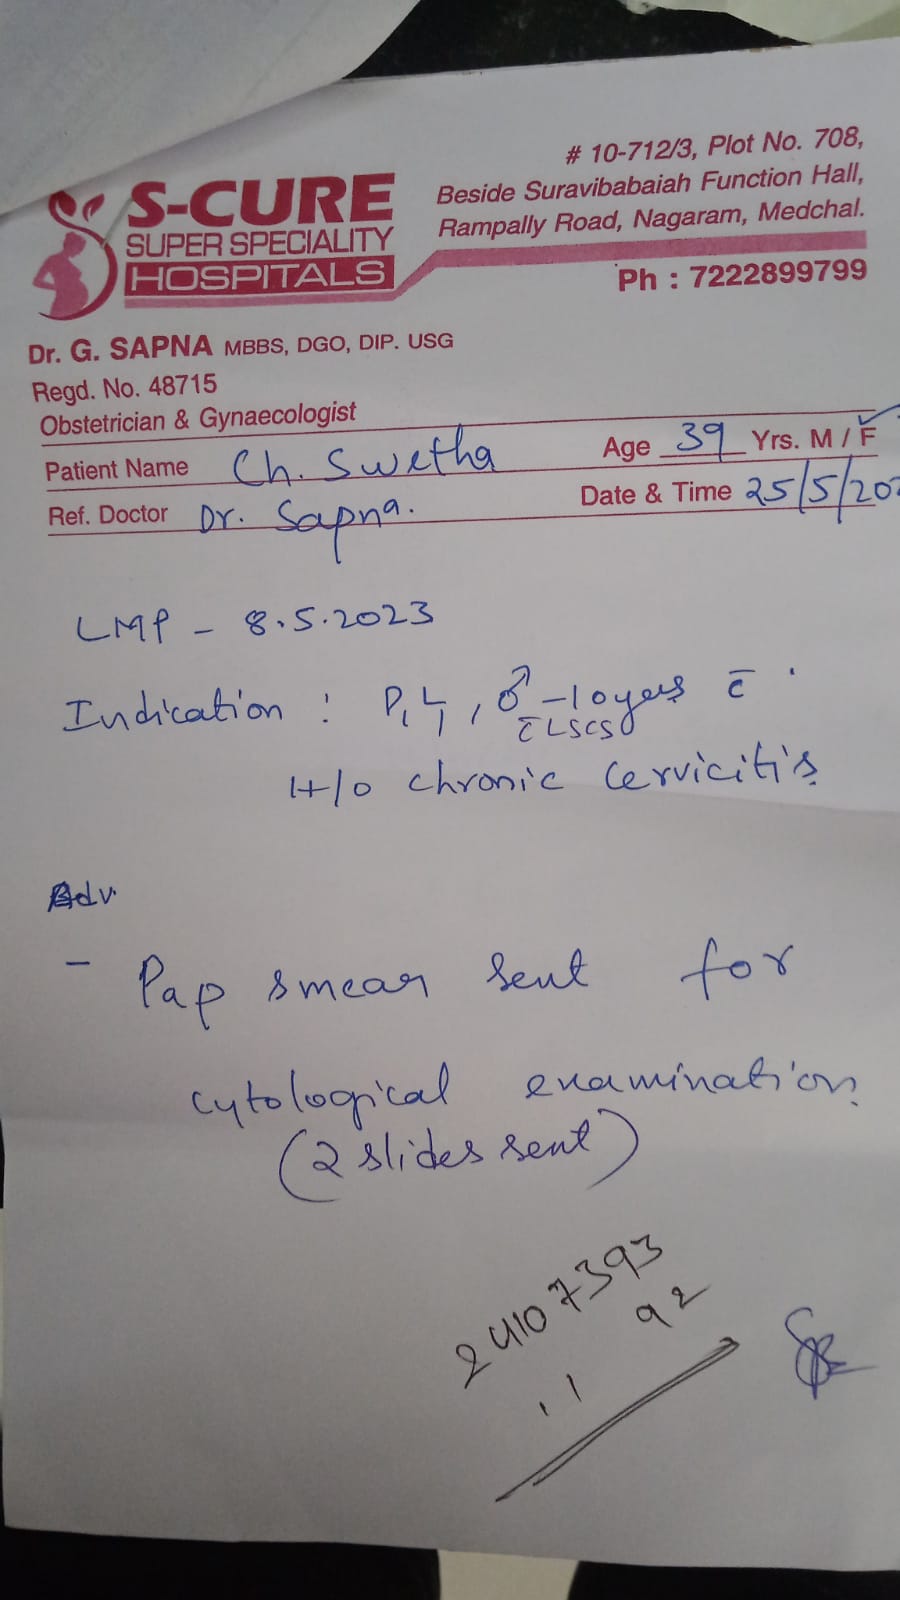 S-CURE
SUPER SPECIALITY
HOSPITALS
# 10-712/3, Plot No. 708,
Beside Suravibabaiah Function Hall,
Rampally Road, Nagaram, Medchal.
Ph : 7222899799
Dr. G. SAPNA MBBS, DGO, DIP. USG
Regd. No. 48715
Obstetrician & Gynaecologist
Patient Name Ch. Swetha Age 39 Yrs. M / F
Ref. Doctor Dr. Sapna. Date & Time 25/5/202
LMP - 8.5.2023
Indication : P1 L1, ♂ - 10 years c̄
c̄ LSCS
H/o chronic cervicitis
Adv
- Pap smear sent for
cytological examination
(2 slides sent)
24107393
11 92